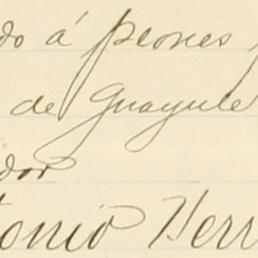 do á peones
de Guayule
dor
tonio Herr